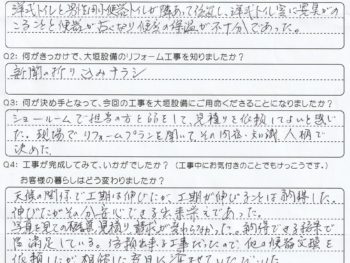 洋式トイレと男性用小便器トイレが隣あって位置し、洋式トイレ室に窓が
ことと便器が古くなり便座の保温が不十分であった。
Q2: 何がきっかけで、大垣設備のリフォーム工事を知りましたか?
新聞の折り込みチラシ
Q3: 何が決め手となって、今回の工事を大垣設備にご用命くださることになりましたか?
ショールームで担当の方と話をして、見積りを依頼してよいと感じ
た。現場でリフォームプランを聞いて、その内容・知識、人柄で
決めた。
Q4: 工事が完成してみて、いかがでしたか? (工事中にお気付きのことでもけっこうです。)
お客様の暮らしはどう変わりましたか?
天候の関係で工期は伸びたが、工期が伸びることは納得した。
伸びたがその分安心できる出来栄えであった。
写真を見ての概算見積り請求が
満足している。信頼出来る工事だったので他の便器交換を
依頼したが